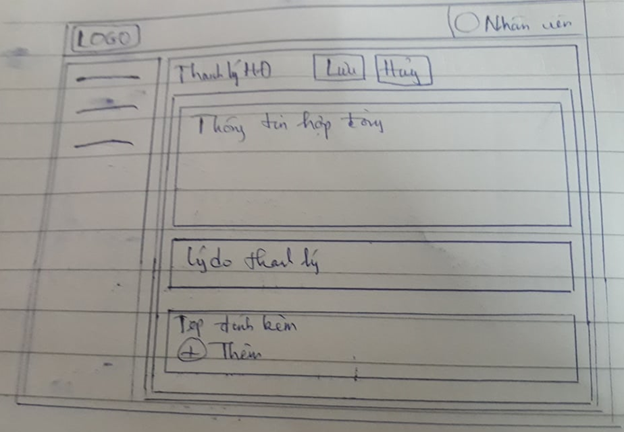 LOGO
Nhân viên
Thanh lý HĐ
Lưu
Hủy
Thông tin hợp đồng
Lý do thanh lý
Tệp đính kèm
+ Thêm